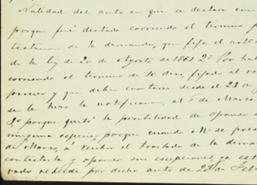 Nulidad del auto en que se declara con
porque fué dictado corriendo el término p
testacion de la demanda, que fija el arto
de la ley de 20 de Agosto de 1861 2º Por hab
corriendo el término de 10 dias, fijado al
proceso y que debia contarse desde el 23 de
se le hizo la notificacion, al 5 de Marzo
3º porque quitó la posibilidad de oponer
ninguna especie, porque cuando M se pres
de Marzo, á recibir el traslado de la dema
contestarla y oponer sus excepciones ya est
por dicho auto de 28 de Feb